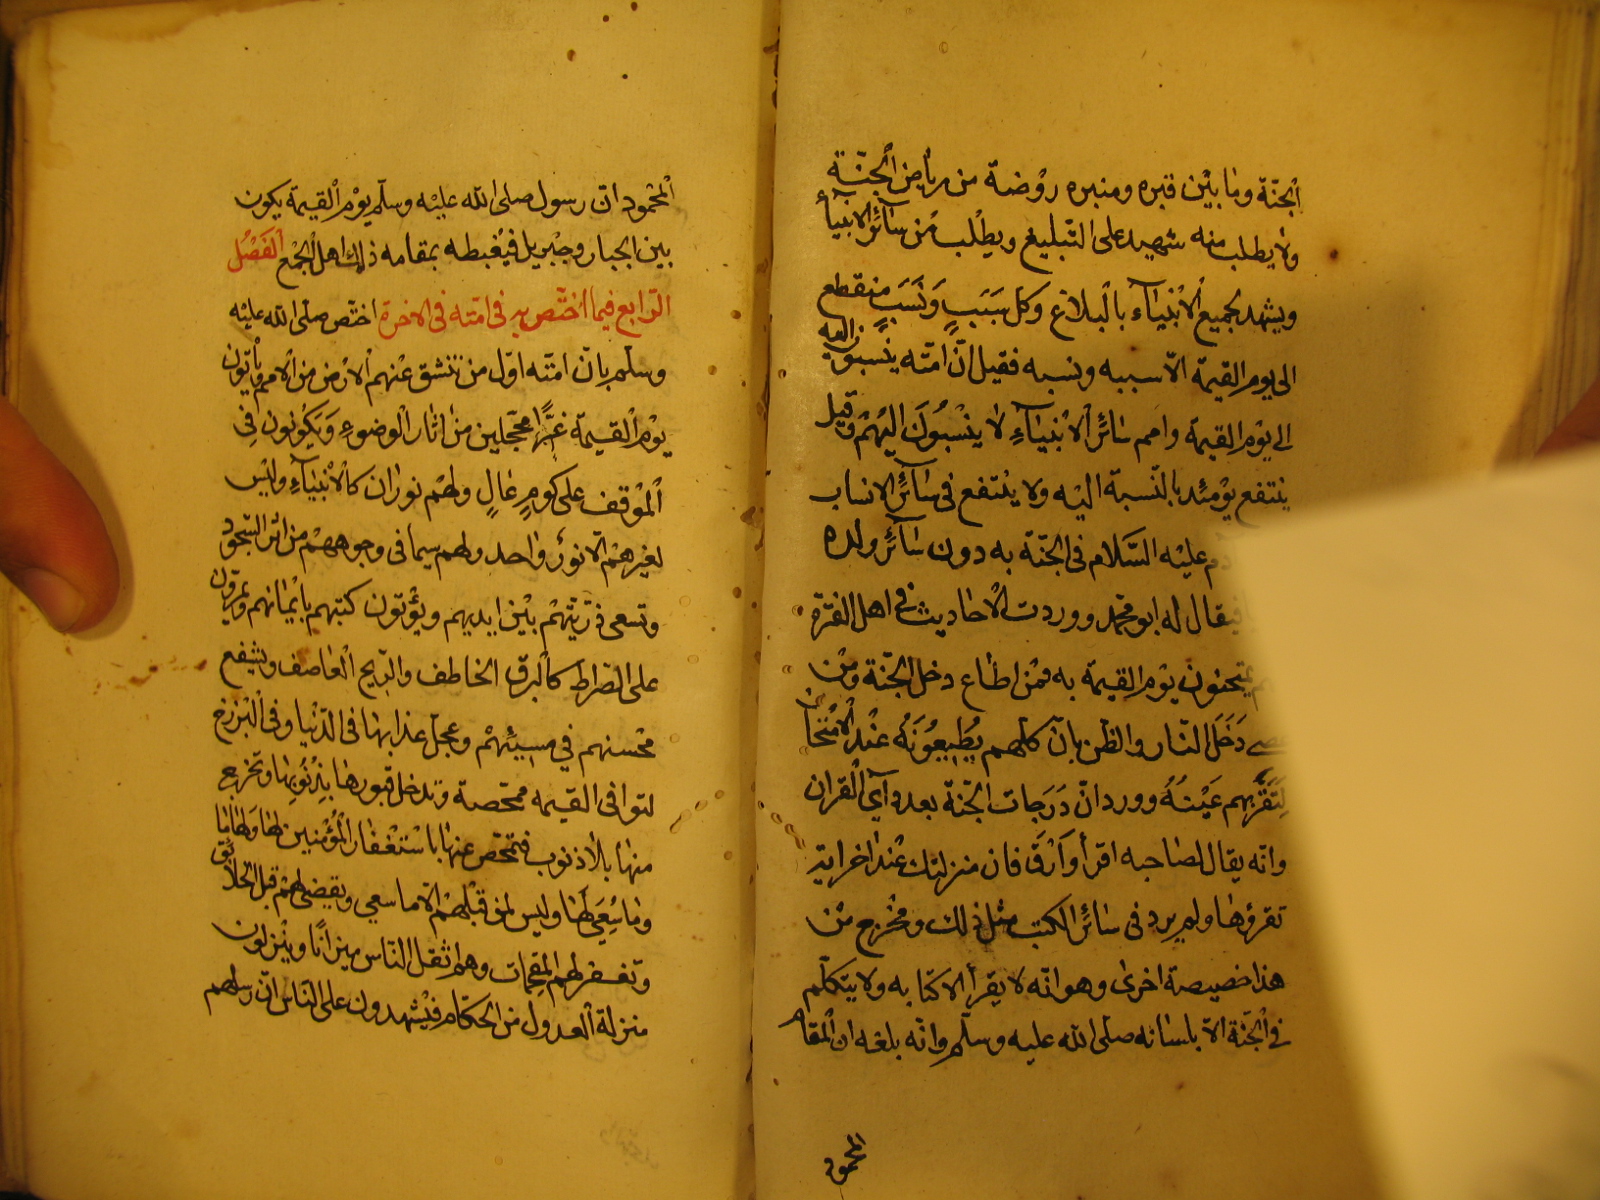 الجنّة وما بين قبره ومنبره روضة من رياض الجنّة
ولا يطلب منه شهيد على التبليغ ويطلب من سائر الانبياء
ويشهد لجميع الانبياء بالبلاغ وكل سَبَبٍ وَنَسَبٍ منقطع
الى يوم القيمة الّا سببه ونسبه فقيل انّ امّته ينسبون اليه
الى يوم القيمة وامم سائر الانبياءِ لا ينسبُونَ اليهم وقيل
ينتفع يومئذ بالنّسبة اليه ولا ينتفع في سائر الانساب
دم عليه السّلام في الجنّة به دون سائر ولده
فيقال له ابو محمد ووردت الاحاديث في اهل الفترة
يمتحنون يوم القيمة به فمن اطاع دخل الجنّة ومن
دَخَلَ النّار والظّن بانّ كلّهم يُطِيعُونَهُ عند الامتحان
لِتَقَرَّ بهم عَيْنُهُ وورد انّ دَرَجات الجنّة بعدد آي القران
وانّه يقال لصاحبه اقرأ وَارْقَ فان منزلتك عند اخر اية
تقرؤها ولم يرد في سائر الكتب مثل ذلك ومخرج من
هذا خصيصة اخرى وهو انّه لا يقرأ الا كتابه ولا يتكلّم
في الجنّة الّا بلسانه صلى الله عليه وسلّم وانّه بلغه ان المقام
المحمود
المحمود انّ رسول صلى الله عليه وسلّم يوم القيمة يكون
بين الجبار وجبريل فيغبطه بمقامه ذلك اهل الجمع الفَصْل
الرّابع فيما اختّص به في امّته في الاخرة اختّص صلّى الله عليه
وسلّم بانّ امّته اوّل من تنشق عنهم الارض من الامم ويأتون
يوم القيمة غرًّا محجلين من اثار الوضوءِ وَيَكُونُون في
الموقف على كومٍ عالٍ ولهم نوران كالانبياءِ وليس
لغيرهم الّا نورٌ واحد ولهم سيما في وجوههم من اثر السّجود
وتسعى ذرّيّتهم بين ايديهم ويؤتون كتبهم بايمانهم ويمرّون
على الصّراط كالبرق الخاطف والرّيح العاصف ويشفع
محسنهم في مسيئهم وعجّل عذابها في الدّنيا وفي البرزخ
لتوافى القيمه ممحّصة وتدخل قبورها بِذُنُوبِهَا وتخرج
منها بلا ذنوب فتمحّص عنها باستغفار المؤمنين لها وَلَها ما
وما سُعِيَ لَها وليس لمن قبلهم الّا ما سعى ويقضى لهم قبل الخلائق
وتغفر لهم المقحمات وهم اثقل النّاس ميزانًا وينزلون
منزلة العدول من الحكّام فيشهدون على النّاس انّ رسلهم